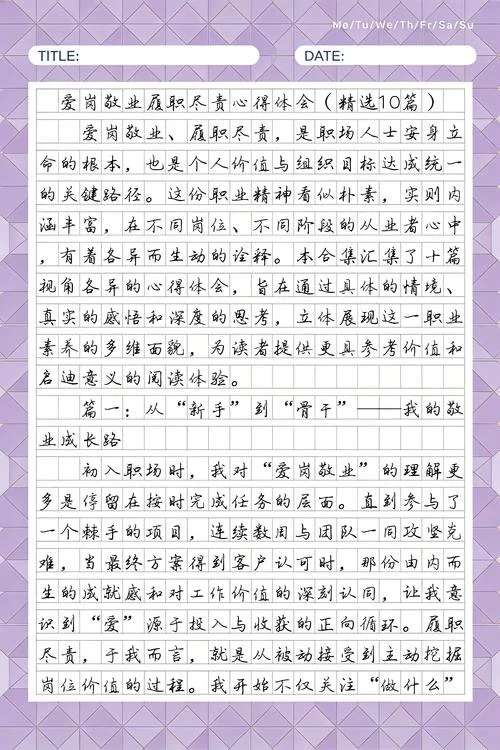 Me/Tu/We/Th/Fr/Sa/Su
TITLE: DATE:
爱岗敬业履职尽责心得体会（精选10篇）
爱岗敬业、履职尽责，是职场人士安身立
命的根本，也是个人价值与组织目标达成统一
的关键路径。这份职业精神看似朴素，实则内
涵丰富，在不同岗位、不同阶段的从业者心中
，有着各异而生动的诠释。本合集汇集了十篇
视角各异的心得体会，旨在通过具体的情境、
真实的感悟和深度的思考，立体展现这一职业
素养的多维面貌，为读者提供更具参考价值和
启迪意义的阅读体验。
篇一：从“新手”到“骨干”——我的敬
业成长路
初入职场时，我对“爱岗敬业”的理解更
多是停留在按时完成任务的层面。直到参与了
一个棘手的项目，连续数周与团队一同攻坚克
难，当最终方案得到客户认可时，那份由内而
生的成就感和对工作价值的深刻认同，让我意
识到“爱”源于投入与收获的正向循环。履职
尽责，于我而言，就是从被动接受到主动挖掘
岗位价值的过程。我开始不仅关注“做什么”